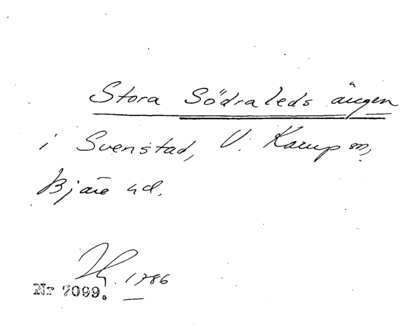 Stora Södraleds ängen
i Svenstad, V. Karup sn,
Bjäre hd.
1786
Nr 7099.